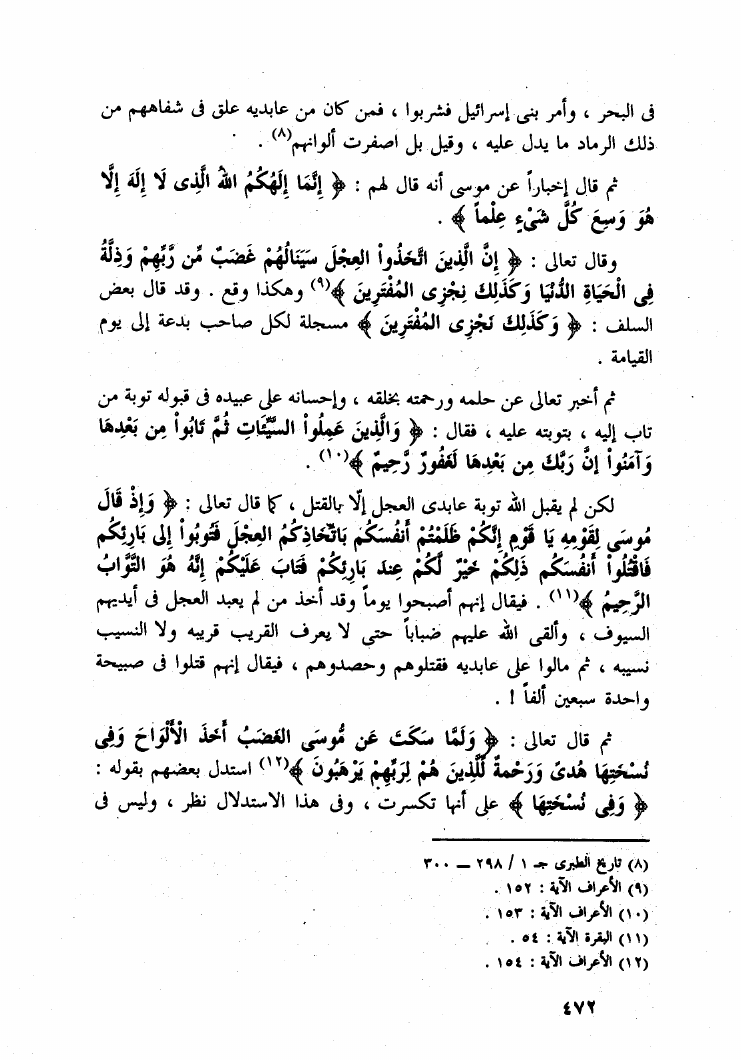 فى البحر ، وأمر بنى إسرائيل فشربوا ، فمن كان من عابديه علق فى شفاههم من
ذلك الرماد ما يدل عليه ، وقيل بل اصفرت ألوانهم(٨) .
ثم قال إخباراً عن موسى أنه قال لهم : ﴿ إِنَّمَا إِلَهُكُمُ اللهُ الَّذِى لَا إِلَهَ إِلَّا
هُوَ وَسِعَ كُلَّ شَىْءٍ عِلْماً ﴾ .
وقال تعالى : ﴿ إِنَّ الَّذِينَ اتَّخَذُواْ العِجْلَ سَيَنَالُهُمْ غَضَبٌ مِّن رَّبِّهِمْ وَذِلَّةٌ
فِى الْحَيَاةِ الدُّنْيَا وَكَذَلِكَ نَجْزِى المُفْتَرِينَ ﴾(٩) وهكذا وقع . وقد قال بعض
السلف : ﴿ وَكَذَلِكَ نَجْزِى المُفْتَرِينَ ﴾ مسجلة لكل صاحب بدعة إلى يوم
القيامة .
ثم أخبر تعالى عن حلمه ورحمته بخلقه ، وإحسانه على عبيده فى قبوله توبة من
تاب إليه ، بتوبته عليه ، فقال : ﴿ وَالَّذِينَ عَمِلُواْ السَّيِّئَاتِ ثُمَّ تَابُواْ مِن بَعْدِهَا
وَآمَنُواْ إِنَّ رَبَّكَ مِن بَعْدِهَا لَغَفُورٌ رَّحِيمٌ ﴾(١٠) .
لكن لم يقبل الله توبة عابدى العجل إلّا بالقتل ، كما قال تعالى : ﴿ وَإِذْ قَالَ
مُوسَى لِقَوْمِهِ يَا قَوْمِ إِنَّكُمْ ظَلَمْتُمْ أَنفُسَكُم بِاتِّخَاذِكُمُ العِجْلَ فَتُوبُواْ إِلى بَارِئِكُم
فَاقْتُلُواْ أَنفُسَكُم ذَلِكُمْ خَيْرٌ لَّكُمْ عِندَ بَارِئِكُمْ فَتَابَ عَلَيْكُمْ إِنَّهُ هُوَ التَّوَّابُ
الرَّحِيمُ ﴾(١١) . فيقال إنهم أصبحوا يوماً وقد أخذ من لم يعبد العجل فى أيديهم
السيوف ، وألقى الله عليهم ضباباً حتى لا يعرف القريب قريبه ولا النسيب
نسيبه ، ثم مالوا على عابديه فقتلوهم وحصدوهم ، فيقال إنهم قتلوا فى صبيحة
واحدة سبعين ألفاً ! .
ثم قال تعالى : ﴿ وَلَمَّا سَكَتَ عَن مُّوسَى الغَضَبُ أَخَذَ الْأَلْوَاحَ وَفِى
نُسْخَتِهَا هُدىً وَرَحْمةٌ لِّلَّذِينَ هُمْ لِرَبِّهِمْ يَرْهَبُونَ ﴾(١٢) استدل بعضهم بقوله :
﴿ وَفِى نُسْخَتِهَا ﴾ على أنها تكسرت ، وفى هذا الاستدلال نظر ، وليس فى
(٨) تاريخ الطبرى جـ ١ / ٢٩٨ — ٣٠٠
(٩) الأعراف الآية : ١٥٢ .
(١٠) الأعراف الآية : ١٥٣ .
(١١) البقرة الآية : ٥٤ .
(١٢) الأعراف الآية : ١٥٤ .
٤٧٢